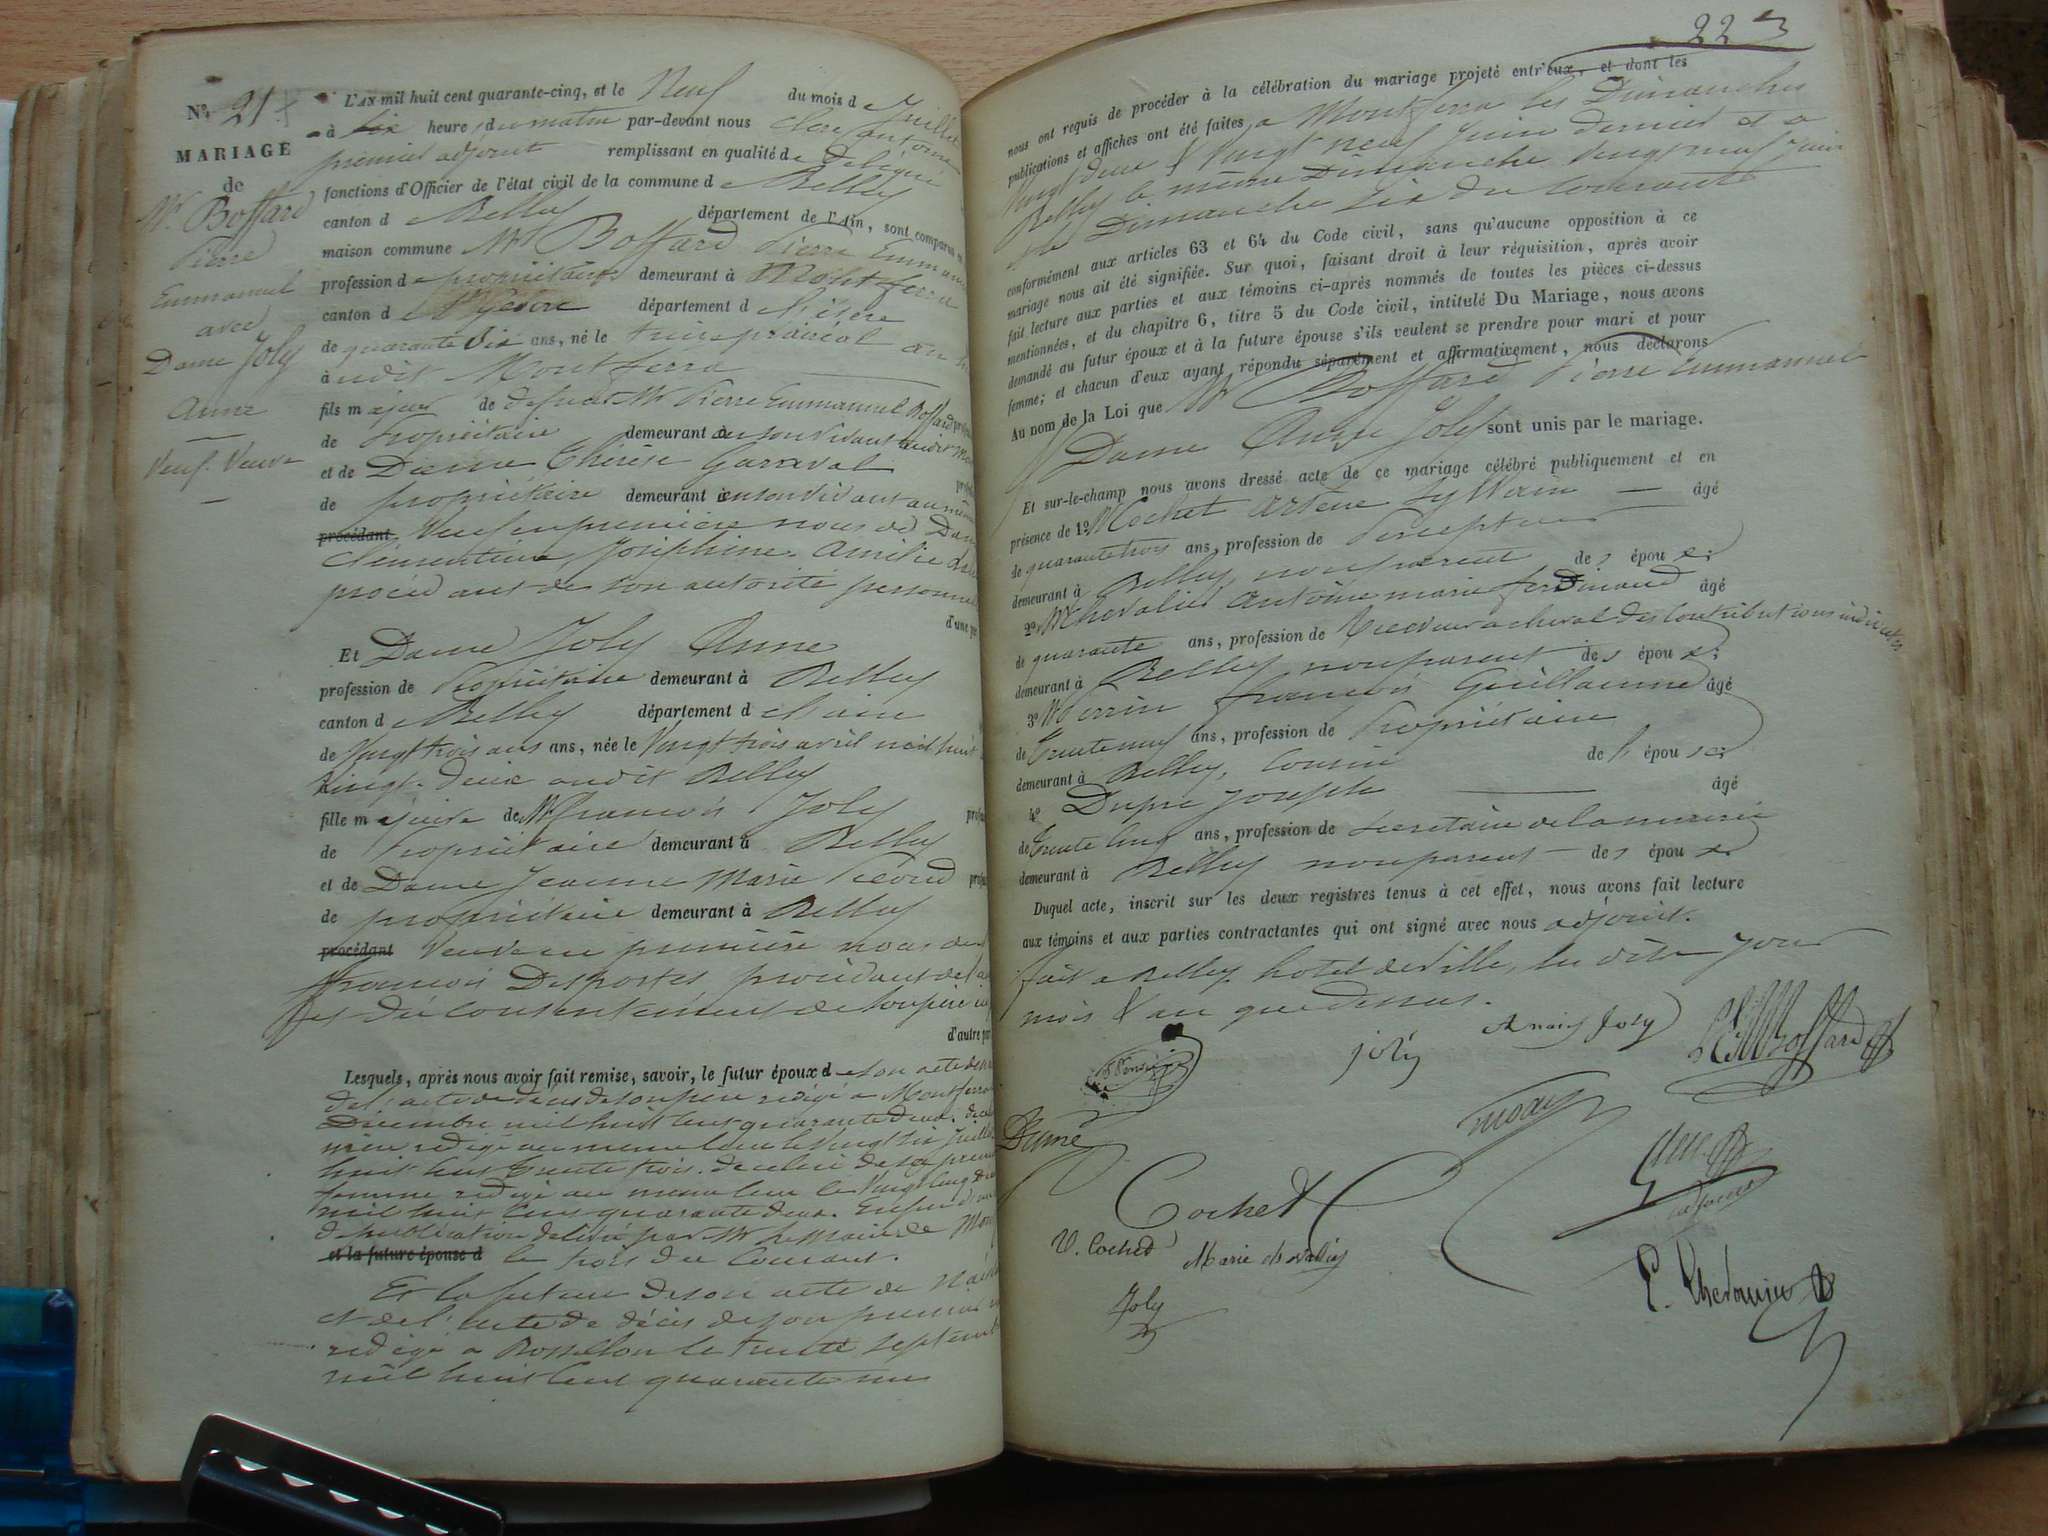 No. 21
MARIAGE
de
Mr. Boffard
Pierre
Emmanuel
avec
Dame Joly
Anne
Veuf. Veuve
L'AN mil huit cent quarante-cinq, et le Neuf du mois de Juillet
à heure du matin par-devant nous Clerc antoine
premier adjoint remplissant en qualité de délégué
fonctions d'Officier de l'état civil de la commune de Belley
canton de Belley département de l'Ain, sont comparus
maison commune Mr Boffard Pierre Emmanuel
profession de propriétaire demeurant à Montferra
canton d département de l'isère
de quarante six ans, né le trois prairial an
audit Montferra
fils majeur de défunt Mr Pierre Emmanuel Boffard
de Propriétaire demeurant en son vivant audit
et de Dame Thérèse Garavat
de propriétaire demeurant en son vivant au même
procédant Veuf en première noces de Dame
Clémentine, Joséphine Amélie
procédant de son autorité personnelle
d'une par
Et Dame Joly Anne
profession de Propriétaire demeurant à Belley
canton de Belley département de l'ain
de Vingt trois ans ans, née le Vingt trois avril mil huit
vingt-deux audit Belley
fille majeure de Mr françois Joly
de Propriétaire demeurant à Belley
et de Dame Jeanne Marie Picond
de propriétaire demeurant à Belley
procédant Veuve en première noces de
françois Desportes, procédant de
du Consentement de son père
d'autre par
Lesquels, après nous avoir fait remise, savoir, le futur époux de son acte de
de l'acte de décès de son père rédigé à Montferra
Décembre mil huit cent quarante deux. de
mère rédigé au même lieu le Vingt six Juillet
huit cent trente trois. de celui de sa première
femme rédigé au même lieu le Vingt cinq
mil huit cent quarante deux. Enfin
de publication délivré par Mr le Maire de
et la future épouse d le trois du Courant.
Et la future de son acte de
et de l'acte de décès de son premier
rédigé à Rossillon le trente septembre
mil huit cent quarante
223
nous ont requis de procéder à la célébration du mariage projeté entr'eux, et dont les
publications et affiches ont été faites, à Montferra les Dimanches
vingt deux & Vingt neuf Juin dernier et à
Belley le même Dimanche Vingt neuf Juin
et le Dimanche six du Courant
conformément aux articles 63 et 64 du Code civil, sans qu'aucune opposition à ce
mariage nous ait été signifiée. Sur quoi, faisant droit à leur réquisition, après avoir
fait lecture aux parties et aux témoins ci-après nommés de toutes les pièces ci-dessus
mentionnées, et du chapitre 6, titre 5 du Code civil, intitulé Du Mariage, nous avons
demandé au futur époux et à la future épouse s'ils veulent se prendre pour mari et pour
femme; et chacun d'eux ayant répondu séparément et affirmativement, nous déclarons
Au nom de la Loi que Mr Boffard Pierre Emmanuel
& Dame Anne Joly sont unis par le mariage.
Et sur-le-champ nous avons dressé acte de ce mariage célébré publiquement et en
présence de 1º Mr Cochet Arsène Sylvain — âgé
de quarante trois ans, profession de Percepteur
demeurant à Belley, non parent des époux;
2º Mr Chevalier Antoine marie ferdinand âgé
de quarante ans, profession de Receveur à cheval des Contributions indirectes
demeurant à Belley non parent des époux;
3º Mr Perrin françois Guillaume âgé
de trente neuf ans, profession de Propriétaire
demeurant à Belley, Cousin de l'épouse;
4º Dupré Joseph âgé
de trente cinq ans, profession de secrétaire de la mairie
demeurant à Belley non parent des époux
Duquel acte, inscrit sur les deux registres tenus à cet effet, nous avons fait lecture
aux témoins et aux parties contractantes qui ont signé avec nous adjoint.
fait à Belley hotel de Ville, les dits jour
mois & an que dessus.
joly
Anaïs Joly
Boffard
Cochet
V. Cochet
Marie chevalier
adjoint
Joly